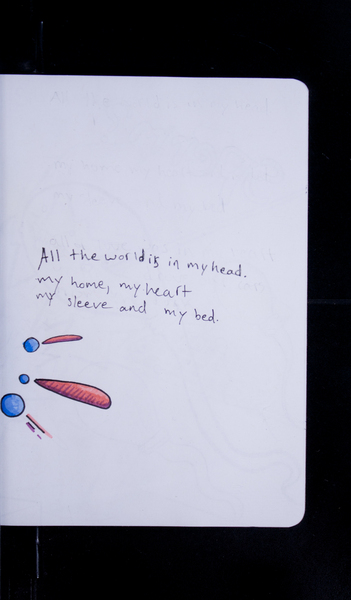 All the world is in my head.
my home, my heart
my sleeve and my bed.